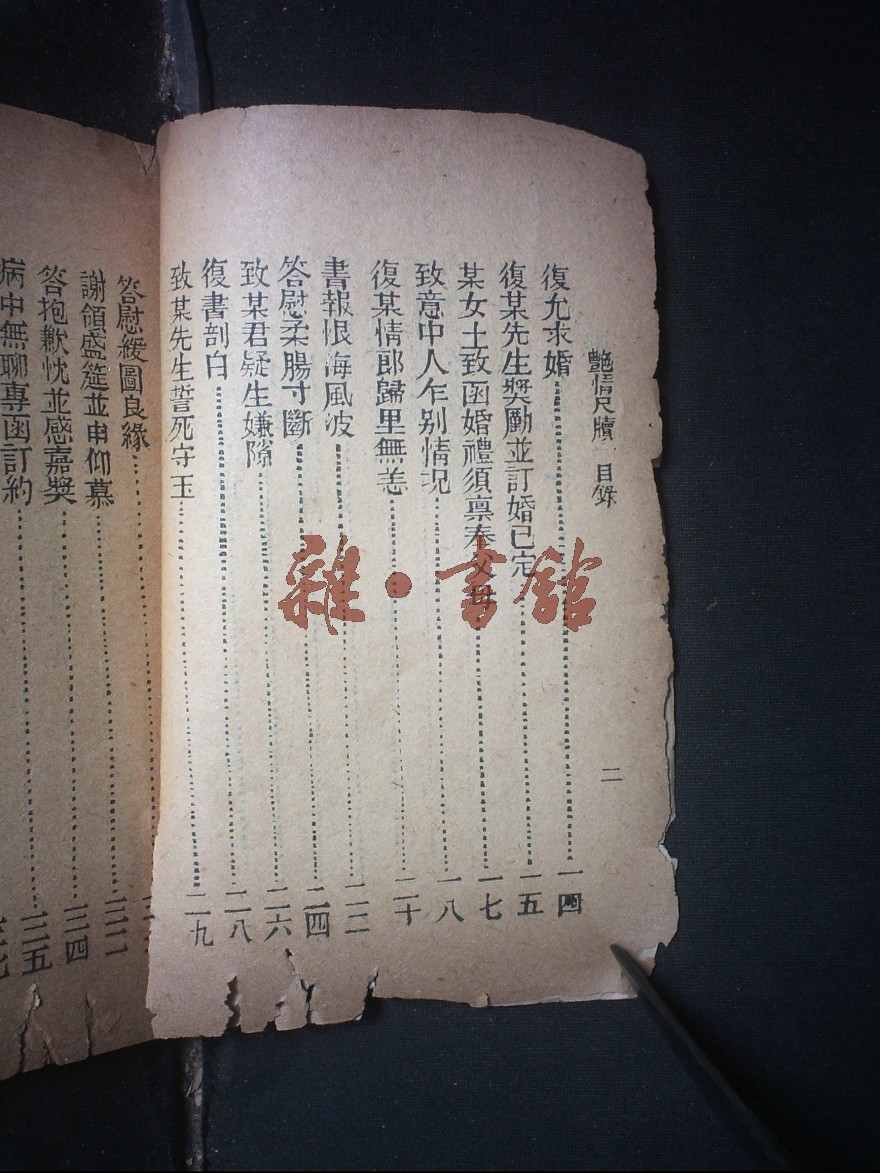 艷情尺牘 目錄
二
復允求婚 一四
復某先生獎勵並訂婚已定 一五
某女士致函婚禮須禀奉父母 一七
致意中人乍别情况 一八
復某情郎歸里無恙 二十
書報恨海風波 二二
答慰柔腸寸斷 二四
致某君疑生嫌隙 二六
復書剖白 二八
致某先生誓死守玉 二九
答慰緩圖良緣
謝領盛筵並申仰慕
答抱歉忱並感嘉獎 三四
病中無聊專函訂約
雜·書館